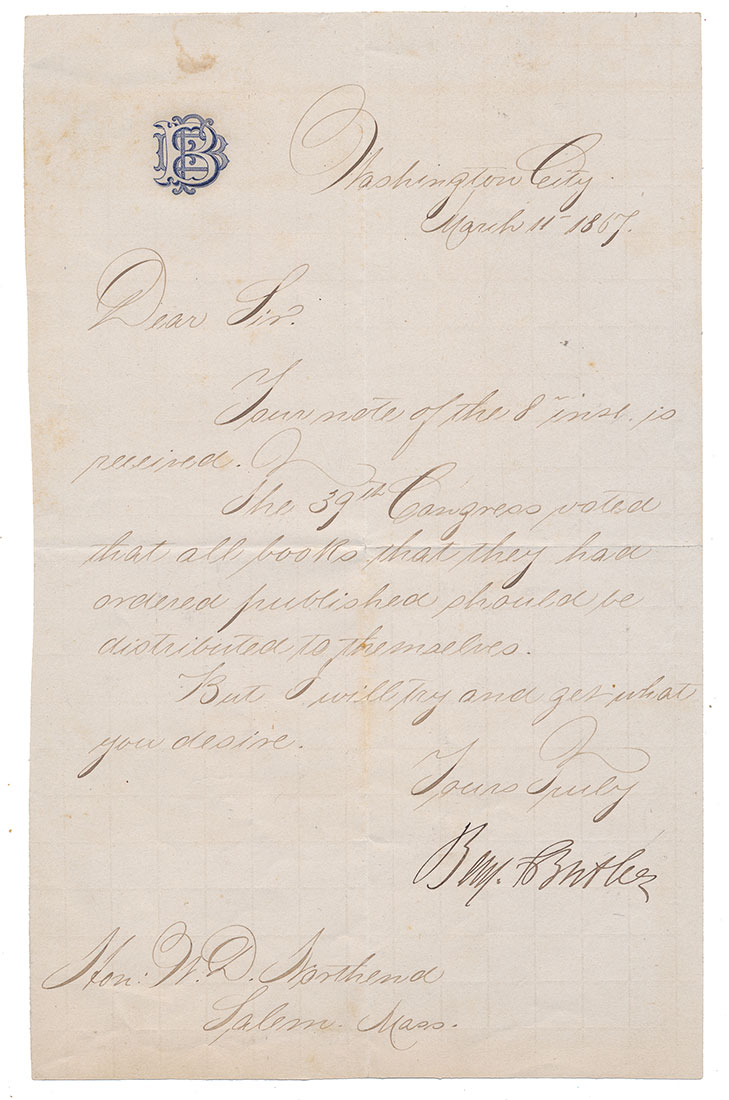 BFB
Washington City.
March 11 - 1867.
Dear Sir.
Your note of the 8" inst. is
received.
The 39th Congress voted
that all books that they had
ordered published should be
distributed to themselves.
But I will try and get what
you desire.
Yours Truly
Benj. F Butler
Hon: W. D. Northend
Salem. Mass.